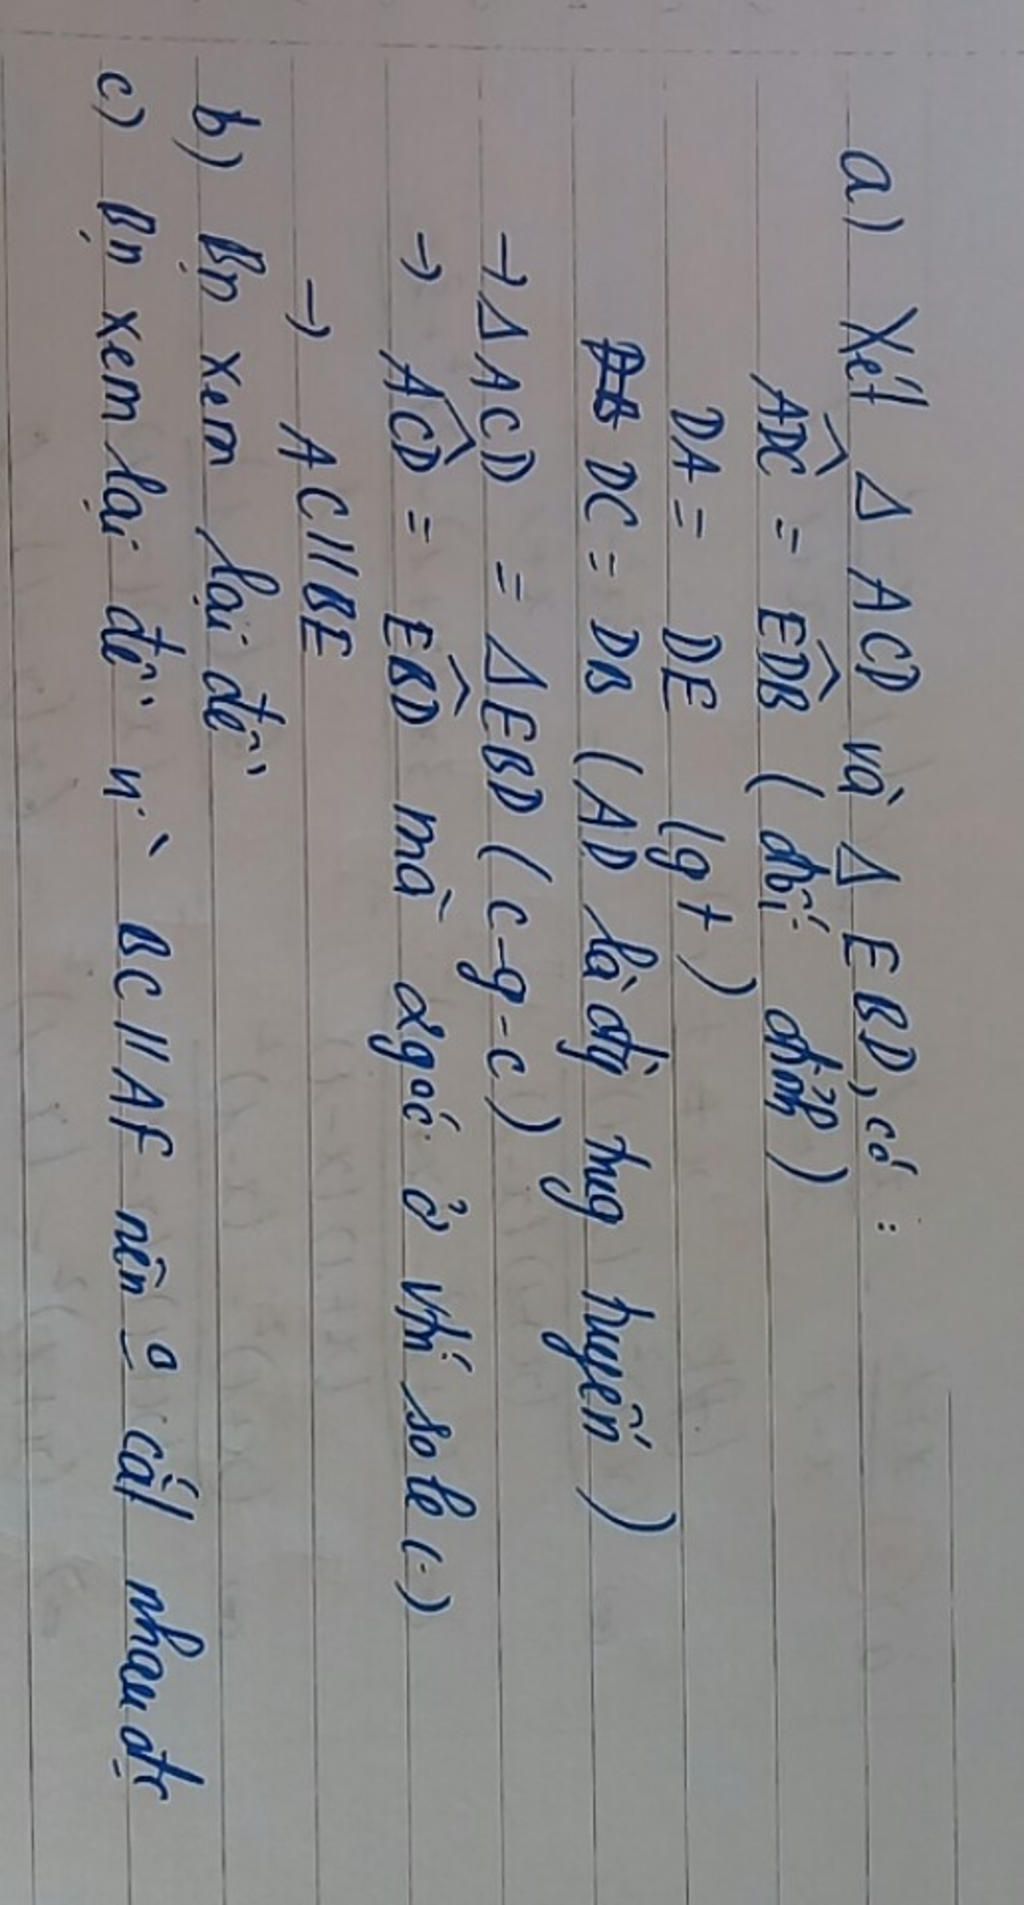 a) Xét Δ ACD và Δ EBD, có :
ADC^ = EDB^ (đối đỉnh)
DA = DE (gt)
DC = DB (AD là đg trug tuyến)
→ Δ ACD = Δ EBD (c-g-c)
→ ACD^ = EBD^ mà 2góc ở vtrí sole (.)
→ AC//BE
b) Bạn xem lại đề
c) Bạn xem lại đề vì BC // AF nên o cắt nhau đc